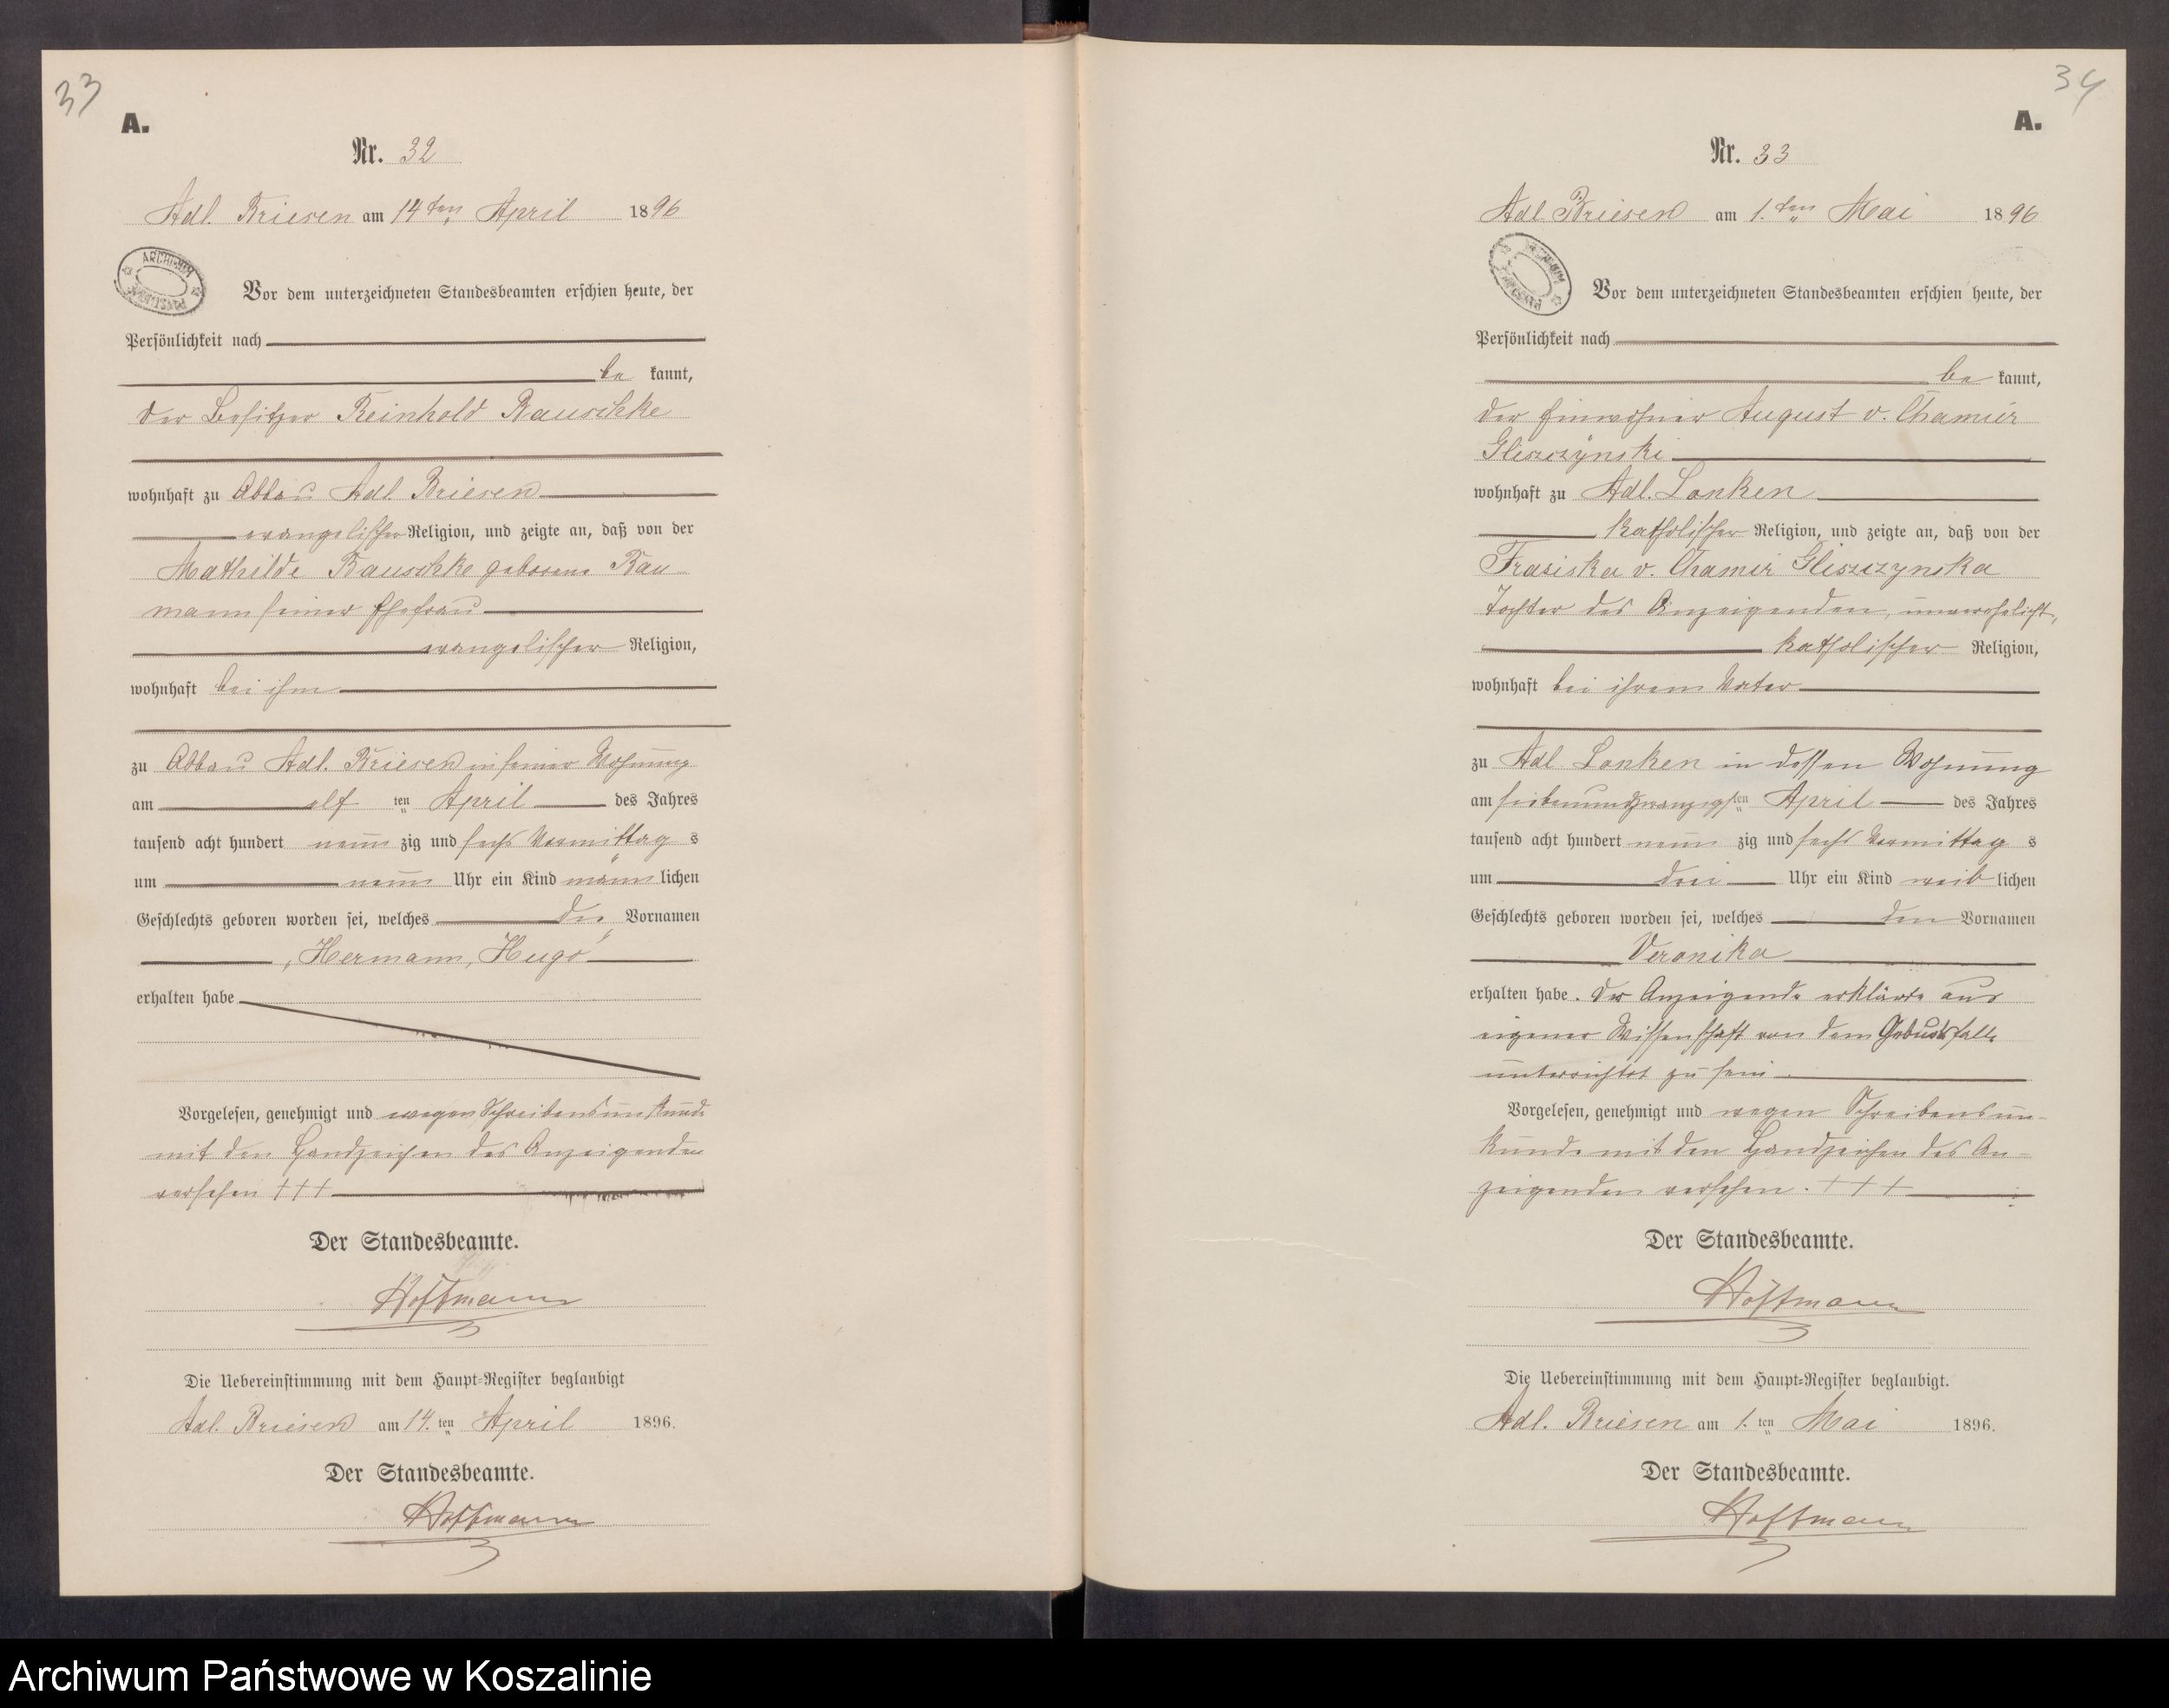 33
A.
Nr. 32
Adl. Briesen am 14ten April 1896
ARCHIWUM
Vor dem unterzeichneten Standesbeamten erschien heute, der
Persönlichkeit nach
be kannt,
der Besitzer Reinhold Rauschke
wohnhaft zu Abbau Adl Briesen
evangelischer Religion, und zeigte an, daß von der
Mathilde Rauschke geborene Bau-
mann seiner Ehefrau
evangelischer Religion,
wohnhaft bei ihm
zu Abbau Adl. Briesen in seiner Wohnung
am elf ten April des Jahres
tausend acht hundert neun zig und sechs Vormittag s
um neun Uhr ein Kind männ lichen
Geschlechts geboren worden sei, welches die Vornamen
„Hermann, Hugo"
erhalten habe
Vorgelesen, genehmigt und wegen Schreibensunkunde
mit den Handzeichen des Anzeigenden
versehen +++
Der Standesbeamte.
Hoffmann
Die Uebereinstimmung mit dem Haupt-Register beglaubigt
Adl. Briesen am 14. ten April 1896.
Der Standesbeamte.
Hoffmann
34
A.
Nr. 33
Adl Briesen am 1. ten Mai 1896
ARCHIWUM
Vor dem unterzeichneten Standesbeamten erschien heute, der
Persönlichkeit nach
be kannt,
der Einwohner August v. Chamier
Gliszczynski
wohnhaft zu Adl. Lonken
katholischer Religion, und zeigte an, daß von der
Frasiska v. Chamier Gliszczynska
Tochter des Anzeigenden, unverehelicht,
katholischer Religion,
wohnhaft bei ihrem Vater
zu Adl Lonken in dessen Wohnung
am siebenundzwanzigsten April des Jahres
tausend acht hundert neun zig und sechs Vormittag s
um drei Uhr ein Kind weib lichen
Geschlechts geboren worden sei, welches den Vornamen
Veronika
erhalten habe. Der Anzeigende erklärte aus
eigener Wissenschaft von dem Geburtsfalle
unterrichtet zu sein
Vorgelesen, genehmigt und wegen Schreibensun-
kunde mit den Handzeichen des An-
zeigenden versehen. +++
Der Standesbeamte.
Hoffmann
Die Uebereinstimmung mit dem Haupt-Register beglaubigt.
Adl. Briesen am 1. ten Mai 1896.
Der Standesbeamte.
Hoffmann
Archiwum Państwowe w Koszalinie